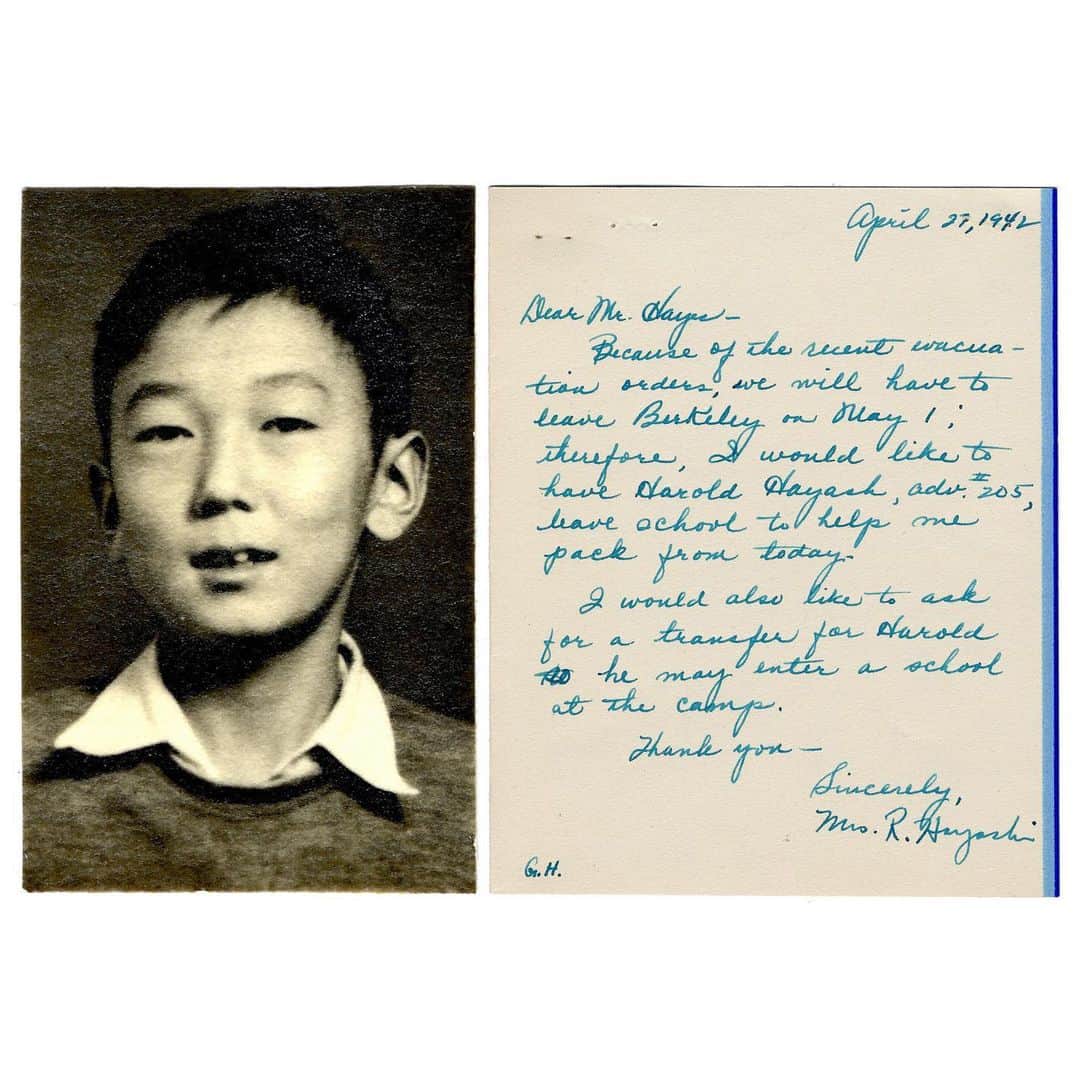 April 27, 1942
Dear Mr. Hayes—
Because of the recent evacua-
tion orders, we will have to
leave Berkeley on May 1;
therefore, I would like to
have Harold Hayash, adv. #205,
leave school to help me
pack from today.
I would also like to ask
for a transfer for Harold
so he may enter a school
at the camp.
Thank you—
Sincerely,
Mrs. R. Hayashi
G.H.